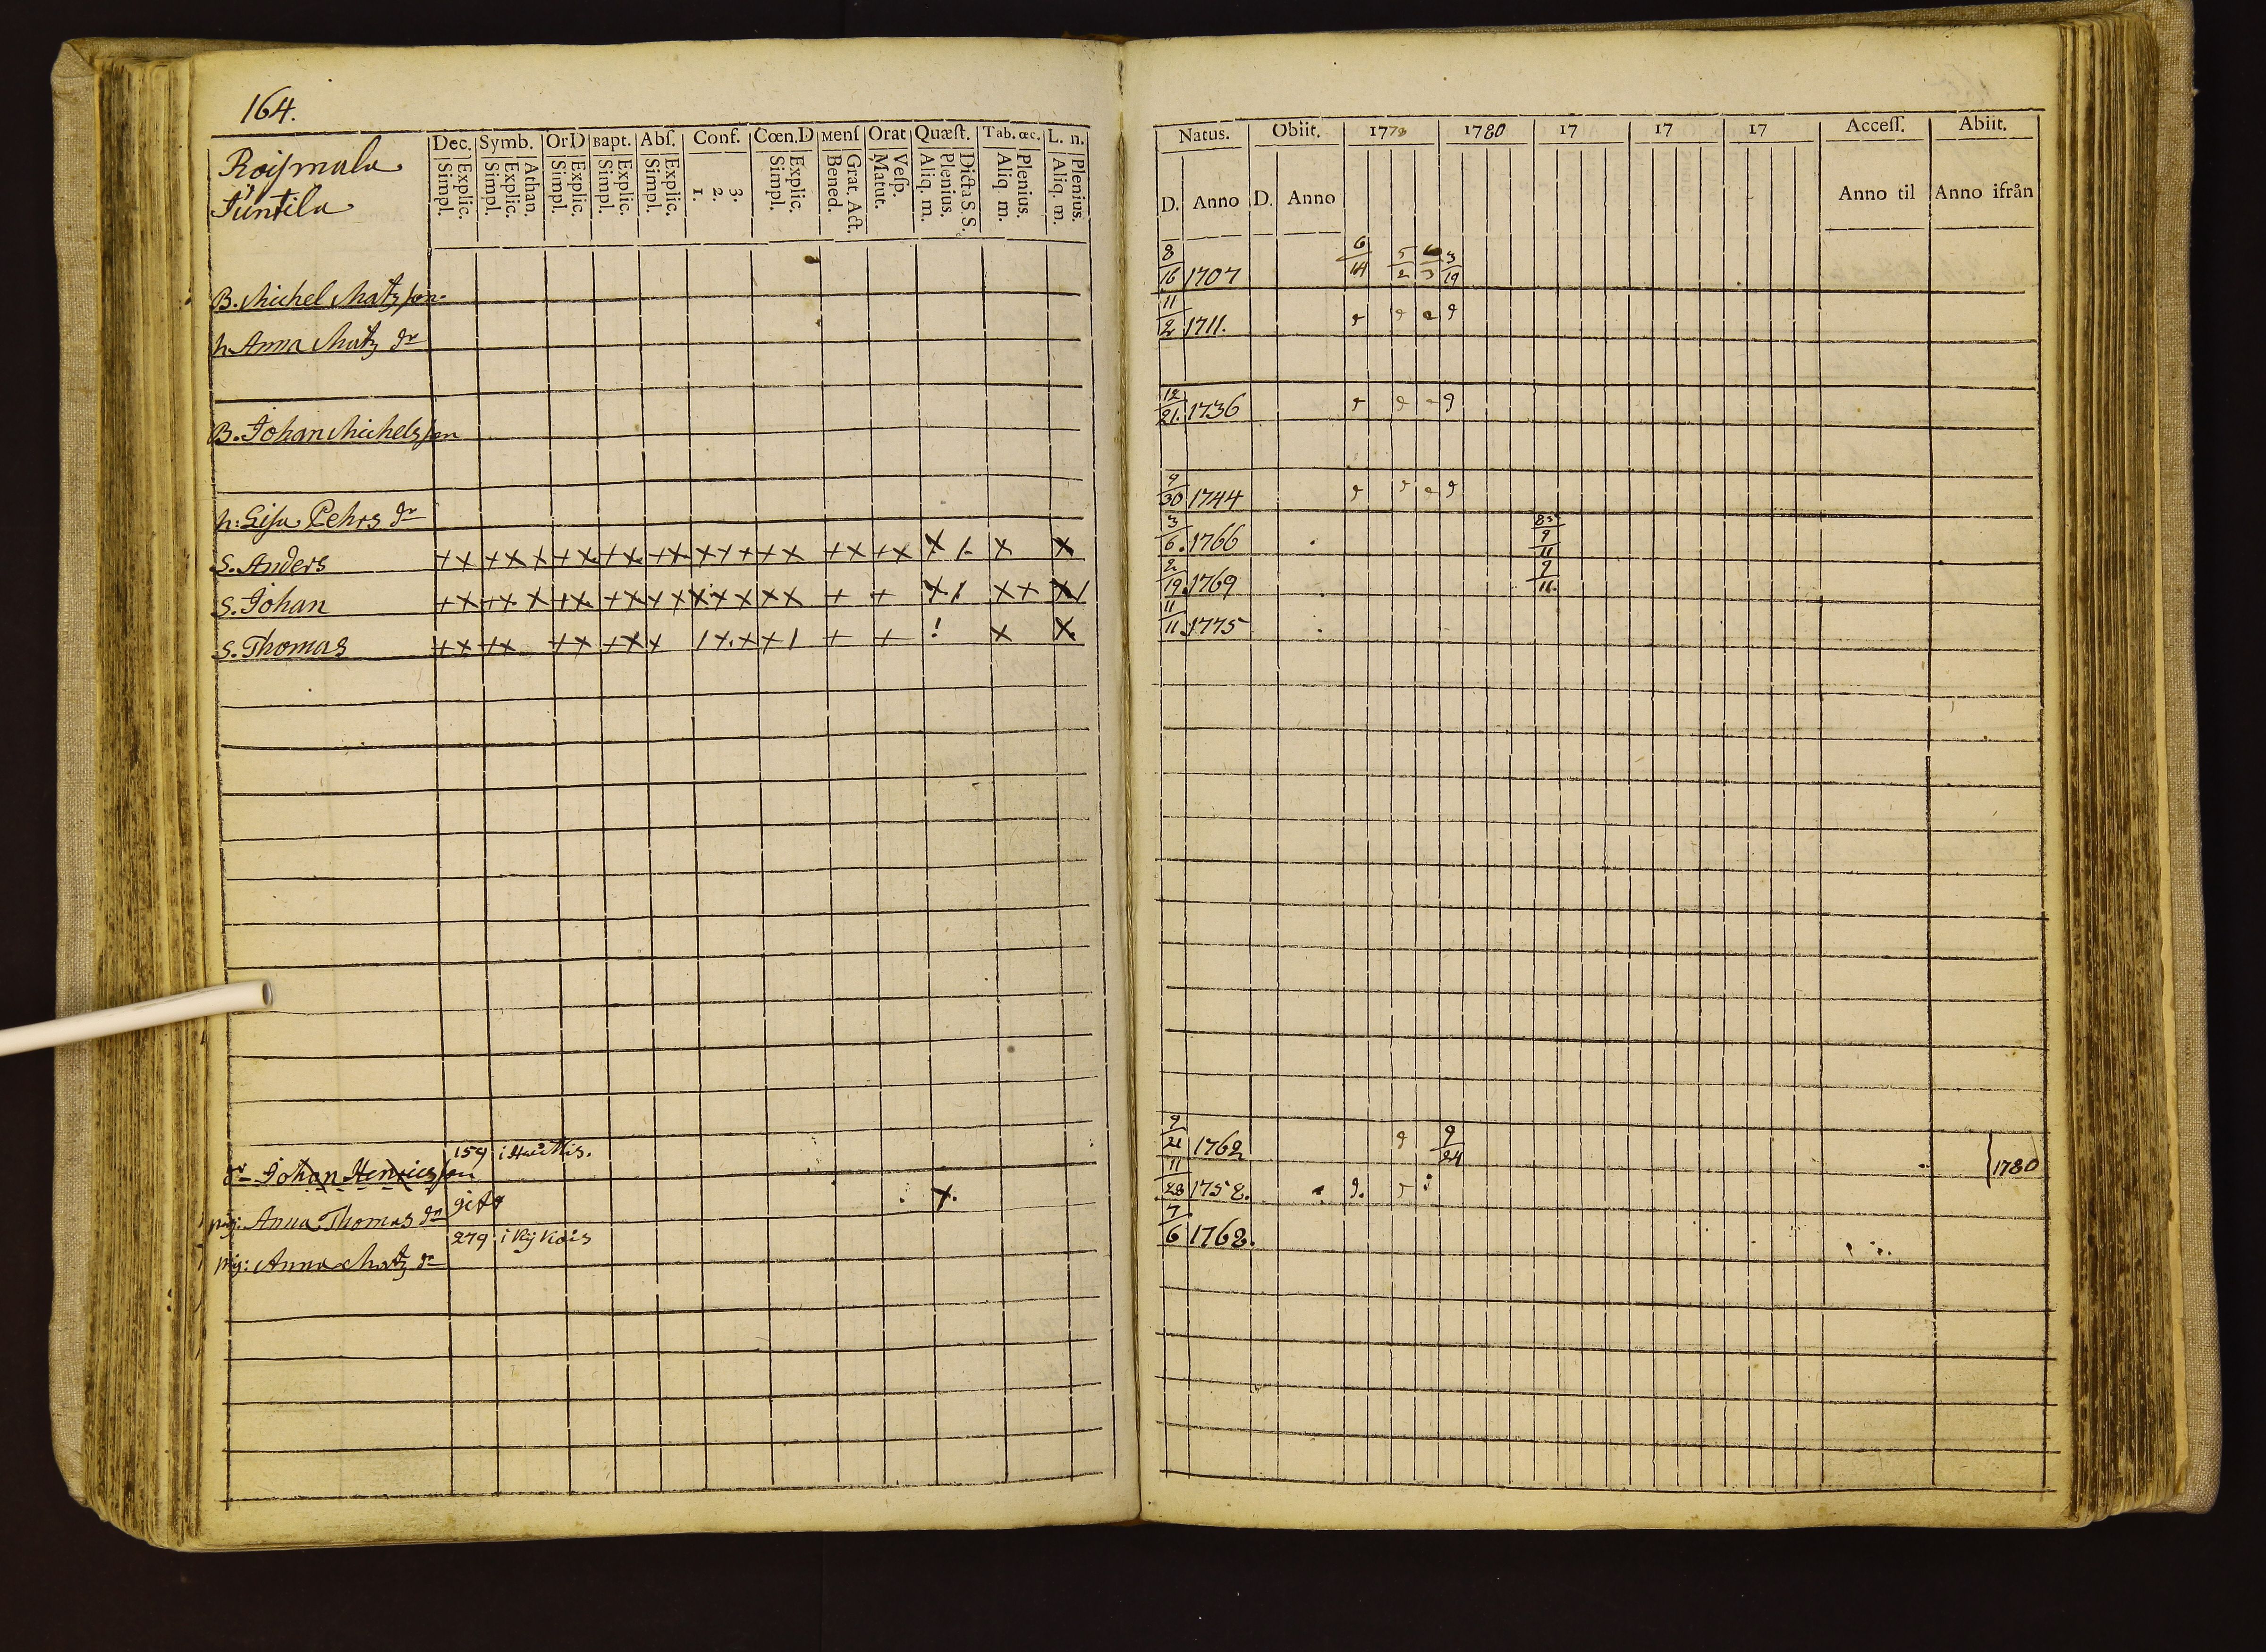 164.
Dec. Symb. OrD Bapt. Abſ. Conf. Cœn.D Menſ Orat Quæſt. Tab. œc. L. n.
Simpl. Explic. Simpl. Explic. Athan. Simpl. Explic. Simpl. Explic. Simpl. Explic. 1. 2. 3. Simpl. Explic. Bened. Grat. Act. Matut. Veſp. Aliq. m. Plenius. Dicta S. S. Aliq. m. Plenius. Aliq. m. Plenius.
Roismala
Juntila
B. Michel Matzson
h. Anna Matz dr
B. Johan Michelsson
h: Lisa Pehrs dr
S. Anders
S. Johan
S. Thomas
159 i
dr Johan Henricsson
gift
pig: Anna Thomas dr
279 i Kykois
pig: Anna Matz dr
Natus. Obiit. 1778 1780 17 17 17 Acceſſ. Abiit.
D. Anno D. Anno Anno til Anno ifrån
8/16 1707 6/14 5/2 3/19
11/2 1711.
12/21. 1736
9/30 1744
3/6. 1766 9/11
2/19. 1769 9/11.
11/11. 1775
9/21 1762 9/24 1780
11/28 1752.
7/6 1762.